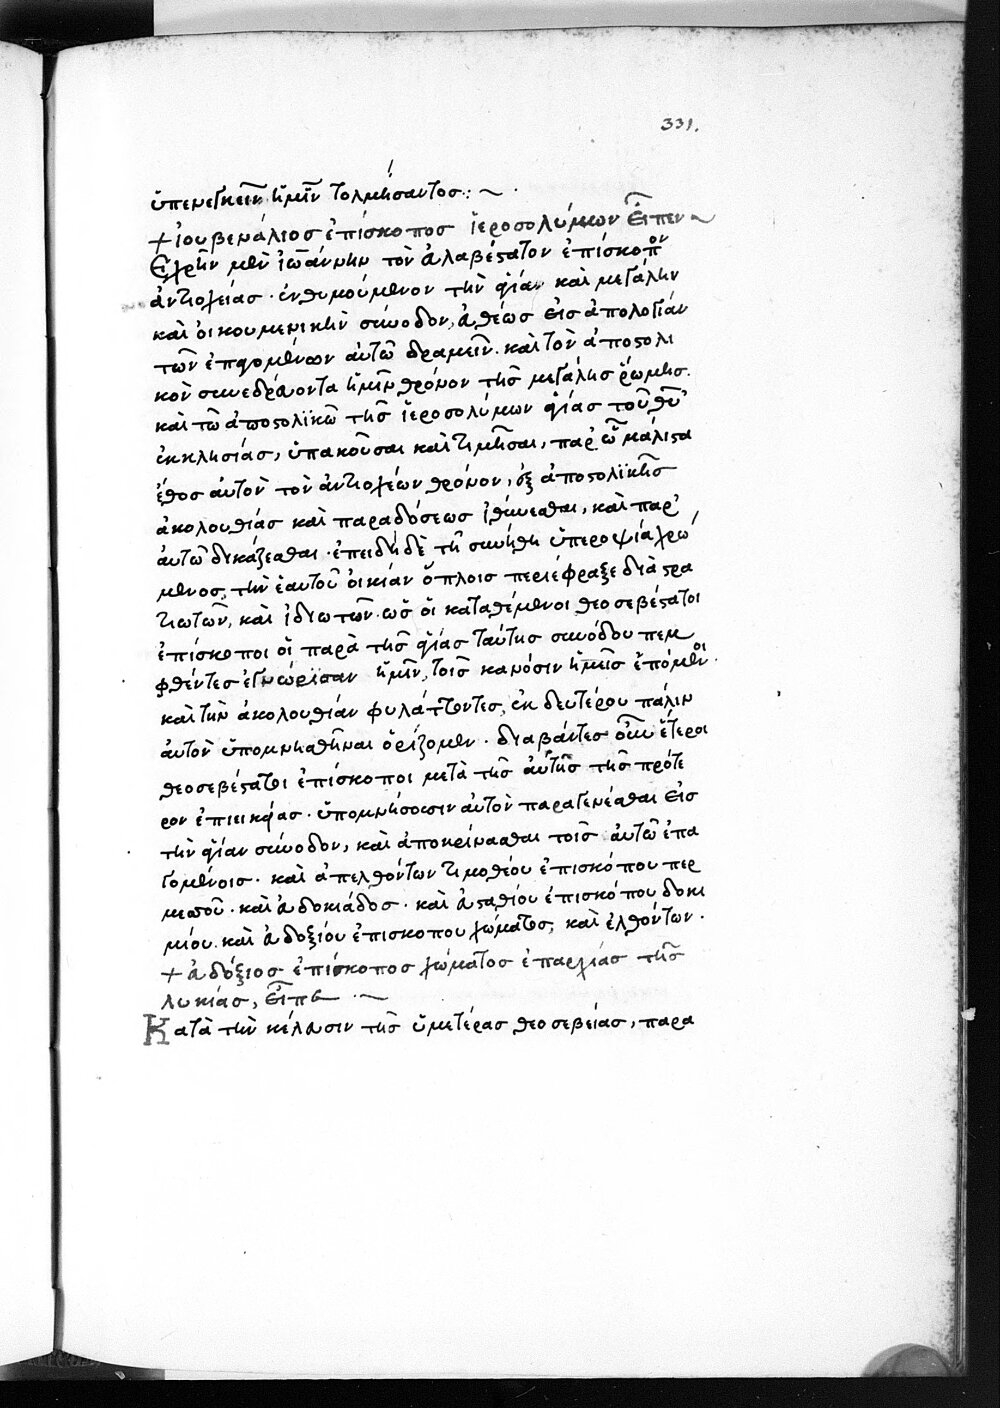 331.
ὑπενεγκεῖν ἡμῖν τολμήσαντος :~
+ ἰουβενάλιος ἐπίσκοπος ἱεροσολύμων εἶπεν ~
Ἐχρῆν μὲν ἰωάννην τὸν εὐλαβέστατον ἐπίσκοπον
ἀντιοχείας · ἐνθυμούμενον τὴν ἁγίαν καὶ μεγάλην
καὶ οἰκουμενικὴν σύνοδον, εὐθέως εἰς ἀπολογίαν
τῶν ἐπαγομένων αὐτῶ δραμεῖν. καὶ τὸν ἀποστολι
κὸν συνεδρεύοντα ἡμῖν θρόνον τῆς μεγάλης ῥώμης.
καὶ τῶ ἀποστολϊκῶ τῆς ἱεροσολύμων ἁγίας τοῦ θυ
ἐκκλησίας, ὑπακοῦσαι καὶ τιμῆσαι, παρ' ὧ μάλιστα
ἔθος αὐτὸν τὸν ἀντιοχέων θρόνον, ἐξ ἀποστολϊκῆς
ἀκολουθίας καὶ παραδόσεως ἰθύνεσθαι, καὶ παρ'
αὐτῶ δικάζεσθαι · ἐπειδὴ δὲ τῆ συνήθη ὑπεροψία χρώ
μενος, τὴν ἑαυτοῦ οἰκίαν ὅπλοις περιέφραξε διὰ στρα
τιωτῶν, καὶ ἰδιωτῶν · ὡς οἱ καταθέμενοι θεοσεβέστατοι
ἐπίσκοποι οἱ παρὰ τῆς ἁγίας ταύτης συνόδου πεμ
φθέντες ἐγνώρϊσαν ἡμῖν, τοῖς κανόσιν ἡμεῖς ἑπόμενοι.
καὶ τὴν ἀκολουθίαν φυλάττοντες, ἐκ δευτέρου πάλιν
αὐτὸν ὑπομνησθῆναι ὁρίζομεν · διαβάντες οὖν ἕτεροι
θεοσεβέστατοι ἐπίσκοποι μετὰ τῆς αὐτῆς τῆς πρότε
ρον ἐπιεικείας · ὑπομνήσουσιν αὐτὸν παραγενέσθαι εἰς
τὴν ἁγίαν σύνοδον, καὶ ἀποκρίνασθαι τοῖς αὐτῶ ἐπα
γομένοις · καὶ ἀπελθόντων τιμοθέου ἐπισκόπου τερ
μισοῦ · καὶ εὐδοκιάδος · καὶ εὐσταθίου ἐπισκόπου δοκι
μίου. καὶ εὐδοξίου ἐπισκόπου χώματος, καὶ ἐλθόντων ·
+ εὐδόξιος ἐπίσκοπος χώματος ἐπαρχίας τῆς
λυκίας, εἶπεν · ~
Κατὰ τὴν κέλευσιν τῆς ὑμετέρας θεοσεβείας, παρα